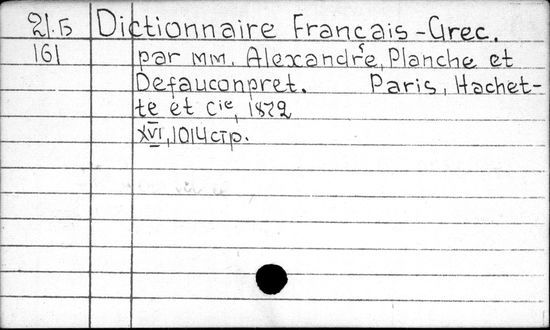 21.Б Dictionnaire Français-Grec.
161 par MM. Alexandre, Planche et
Defauconpret. Paris, Hachet-
te et Cie, 1872
XVI, 1014 стр.